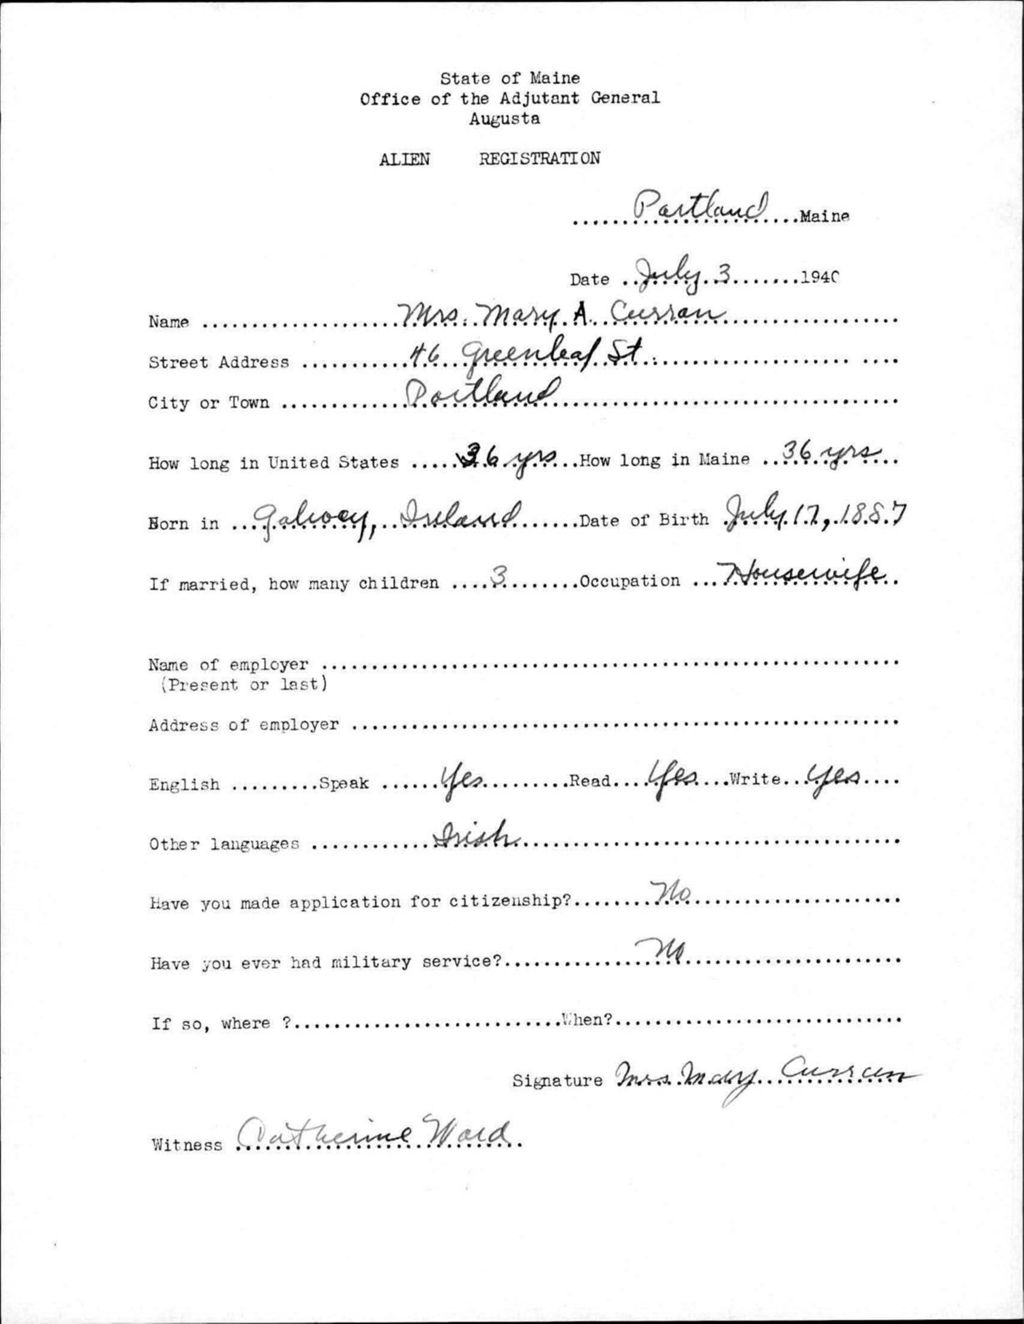 State of Maine
Office of the Adjutant General
Augusta
ALIEN REGISTRATION
......Portland....Maine
Date ..July 3.......1940
Name ....................Mrs. Mary A. Curran..................
Street Address ...........46 Greenleaf St.......................
City or Town .............Portland..................................
How long in United States .....36 yrs...How long in Maine ..36 yrs...
Born in ..Galway, Ireland.......Date of Birth .July 17, 1887
If married, how many children ....3........Occupation ...Housewife..
Name of employer ..........................................................
(Present or last)
Address of employer .......................................................
English .........Speak ......Yes..........Read....Yes....Write..Yes....
Other languages ............Irish......................................
Have you made application for citizenship?........No.....................
Have you ever had military service?...............No......................
If so, where ?...........................When?.............................
Signature Mrs. Mary Curran
Witness Catherine Ward.